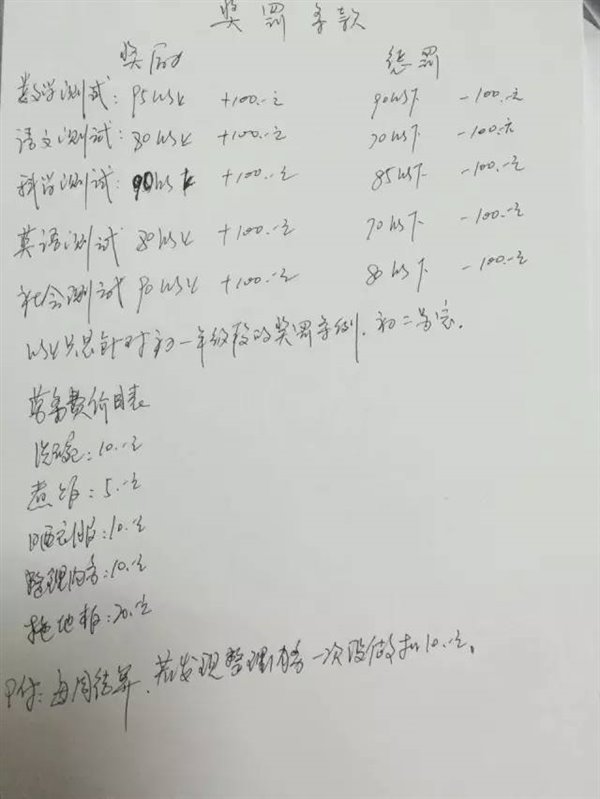 奖罚条款
奖励 惩罚
数学测试：95以上 +100.-元 90以下 -100.-元
语文测试：80以上 +100.-元 70以下 -100.-元
科学测试：90以上 +100.-元 85以下 -100.-元
英语测试 80以上 +100.-元 70以下 -100.-元
社会测试 90以上 +100.-元 80以下 -100.-元
以上只是针对初一年级段的奖罚条例，初二另定。
劳务费价目表
洗碗：10.-元
煮饭：5.-元
晒衣服：10.-元
整理内务：10.-元
拖地板：20.-元
每周结算，若发现整理内务一次没做扣10.-元。